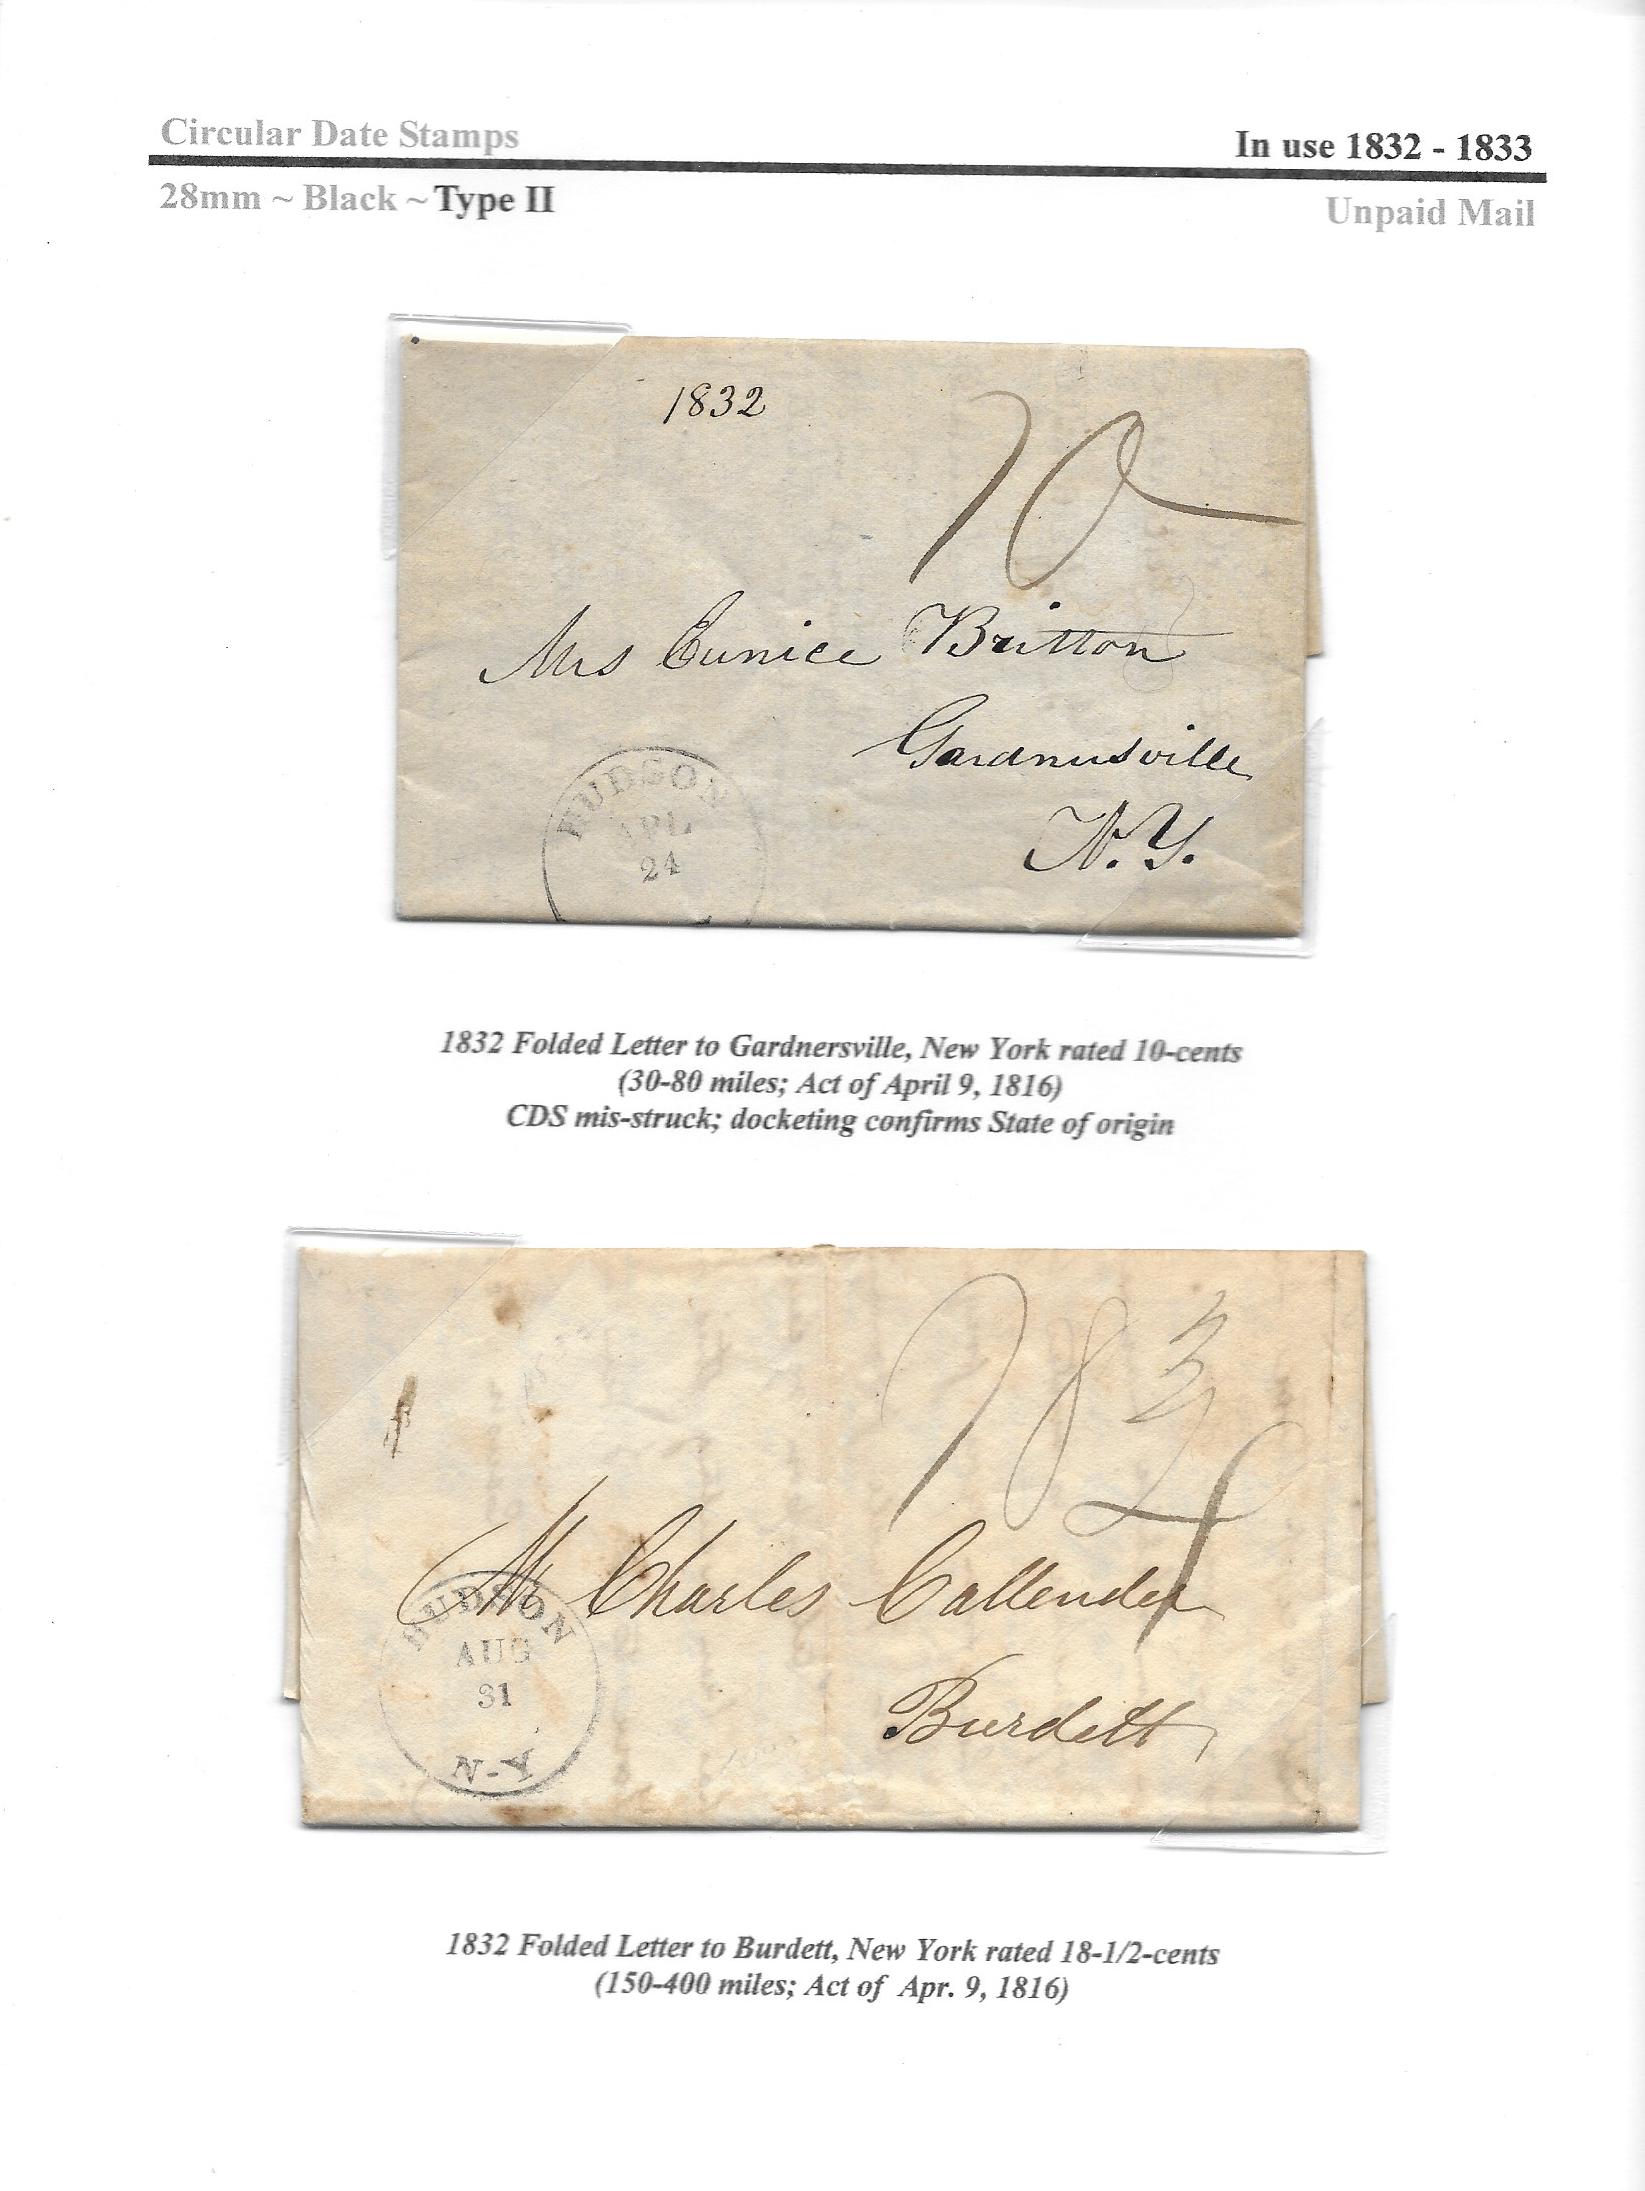 Circular Date Stamps
In use 1832 - 1833
28mm ~ Black ~ Type II
Unpaid Mail
1832
10
Mrs Eunice Britton
Gardnersville
N.Y.
HUDSON
APL
24
1832 Folded Letter to Gardnersville, New York rated 10-cents
(30-80 miles; Act of April 9, 1816)
CDS mis-struck; docketing confirms State of origin
18 3/4
Mr Charles Callender
HUDSON
AUG
31
N-Y
Burdett
1832 Folded Letter to Burdett, New York rated 18-1/2-cents
(150-400 miles; Act of Apr. 9, 1816)